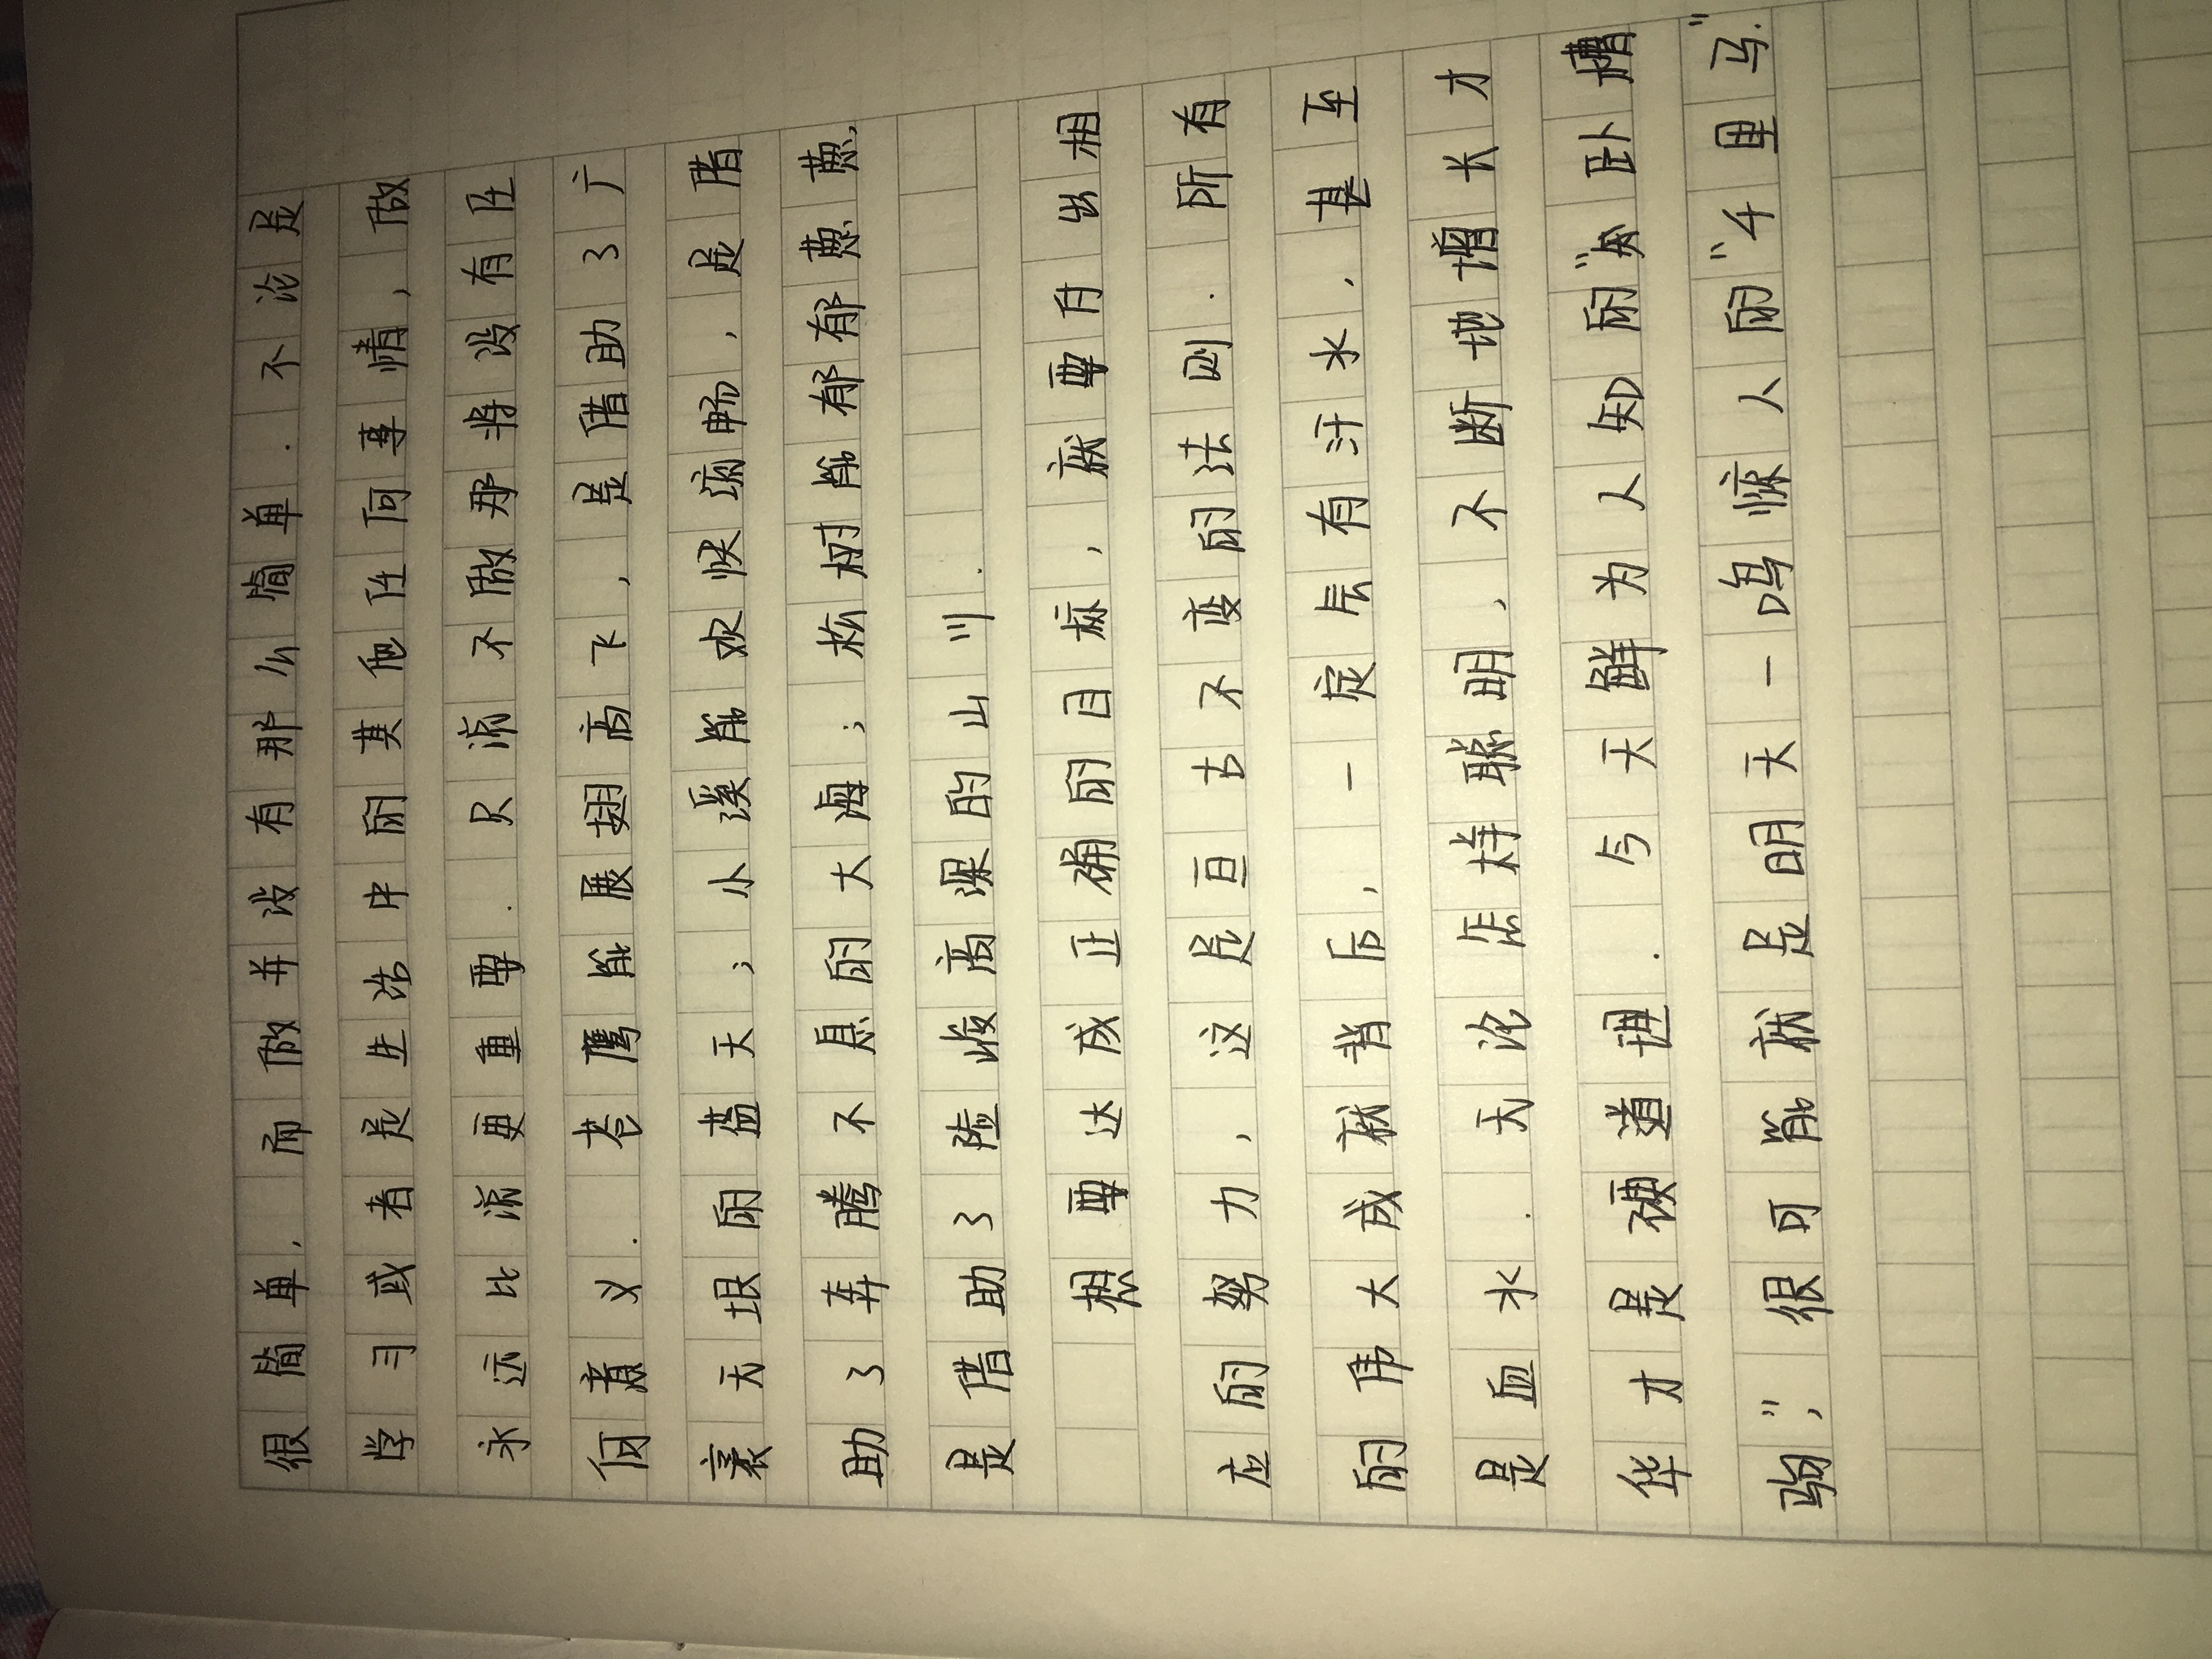 很简单，而做并没有那么简单．不论是
学习或者是生活中的其他任何事情，做
永远比演更重要．只演不做那将没有任
何意义．苍鹰能展翅高飞，是借助了广
袤无垠的蓝天；小溪能欢快流畅，是借
助了奔腾不息的大海；松树能郁郁葱葱，
是借助了险峻高深的山川．
想要达成正确的目标，就要付出相
应的努力，这是亘古不变的法则．所有
的伟大成就背后，一定层有汗水，甚至
是血水．无论怎样聪明，不断地增长才
华才是硬道理．今天鲜为人知的"为卧槽
驹"，很可能就是明天一鸣惊人的"千里马"．